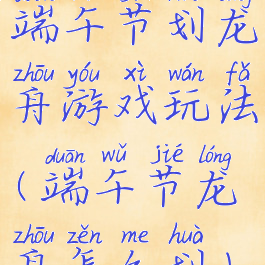 端午节划龙
zhōu yóu xì wán fǎ
舟游戏玩法
duān wǔ jié lóng
(端午节龙
zhōu zěn me huà